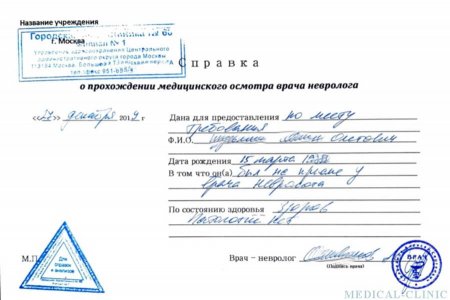 Название учреждения
Городская поликлиника № 60
г. Москва
филиал № 1
Управление здравоохранения Центрального
административного округа города Москвы
Справка
о прохождении медицинского осмотра врача невролога
декабря 2019 г
Дано для предоставления по месту
требования
Ф.И.О. Олегович
Дата рождения 15 марта
В том что он(а) был на приеме у
врача невролога
По состоянию здоровья Здоров
Патологий нет
М.П.
Для справок и анализов
Врач - невролог
(Подпись врача)
ВРАЧ
MEDICAL-CLINIC